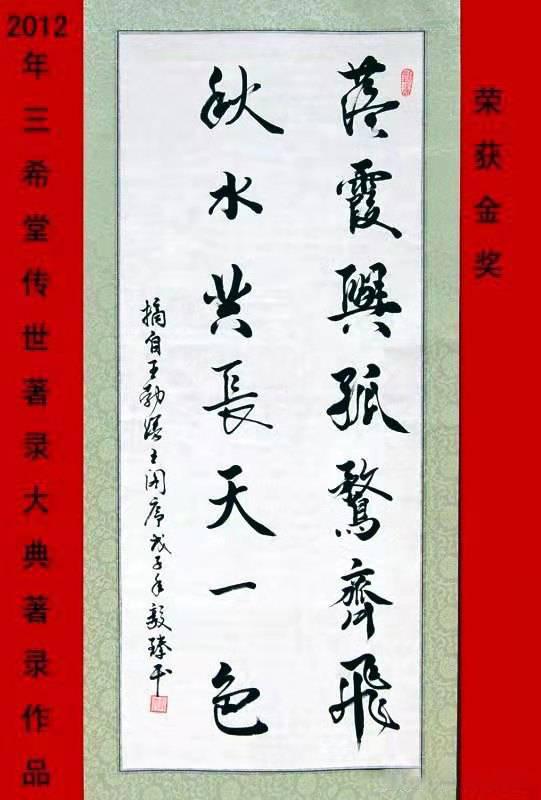 2012年三希堂传世著录大典著录作品
荣获金奖
落霞與孤鶩齊飛
秋水共長天一色
摘自王勃滕王阁序戊子年毅臻书